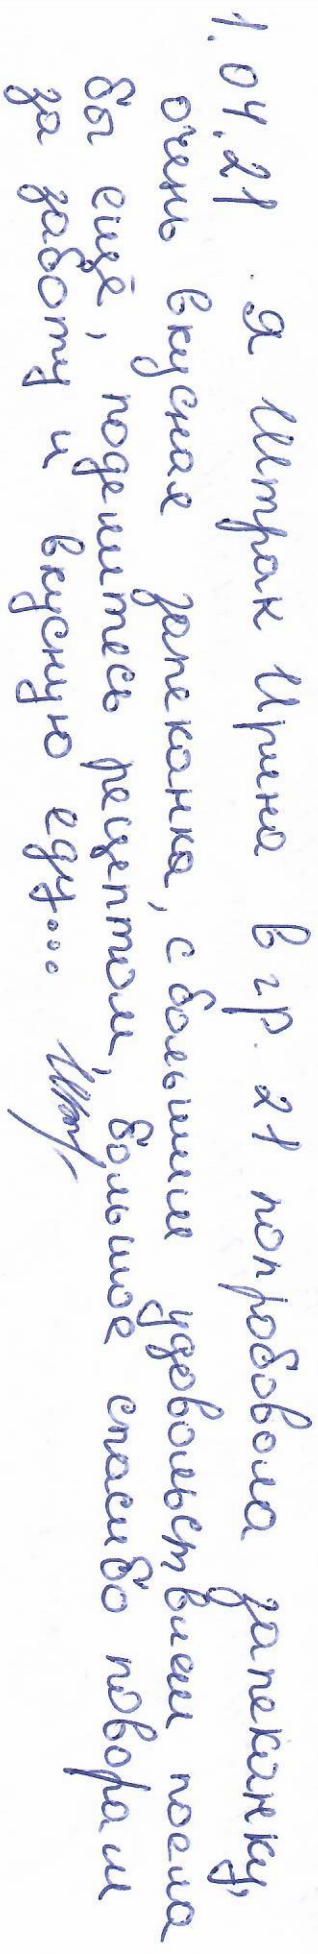 1.04.21 . Я Штрак Ирина в гр. 21 попробовала запеканку,
очень вкусная запеканка, с большим удовольствием поела
бы ещё, поделитесь рецептом, большое спасибо поварам
за заботу и вкусную еду...